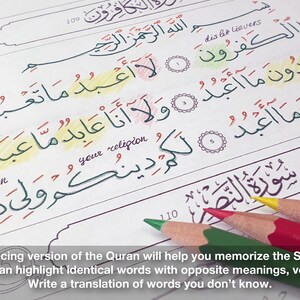 سورة الكافرون
109
بسم الله الرحمن الرحيم
disbelievers
الكفرون
لا أعبد ما تعبـ
ولا أنا عابد ما عبد
ما أعبد
your religion
لكم دينكم ولي د
سورة النصر
110
cing version of the Quran will help you memorize the S
an highlight identical words with opposite meanings, ve
Write a translation of words you don't know.